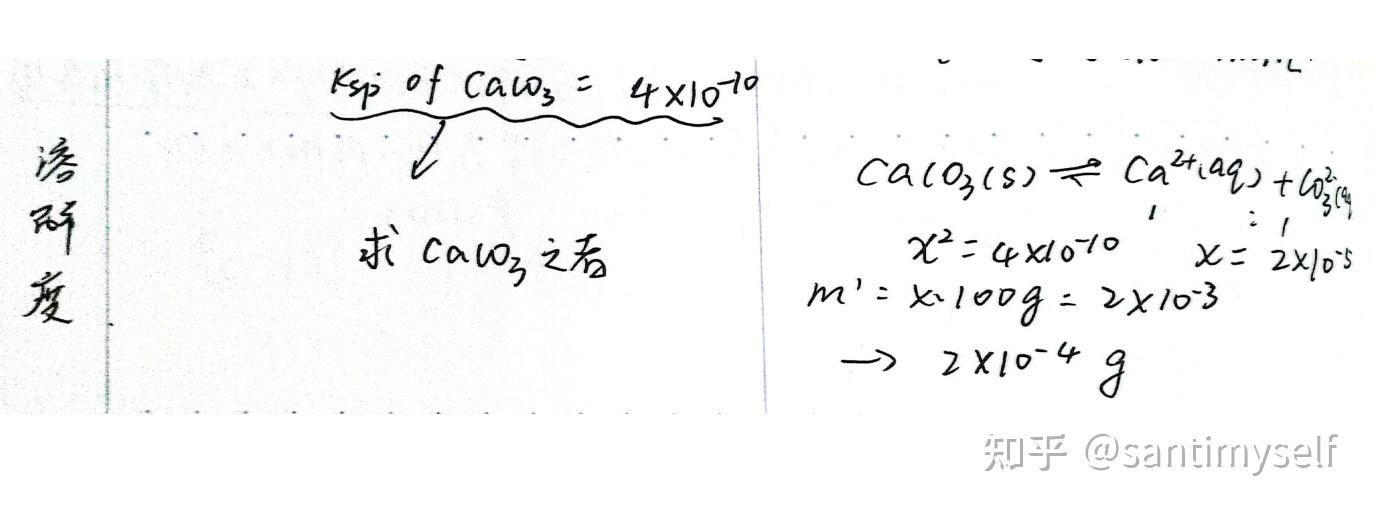 Ksp of CaCO3 = 4×10-10
溶解度
求 CaCO3 之者
CaCO3(s) ⇌ Ca2+(aq) + CO32-(aq)
1 : 1
x2 = 4×10-10 x = 2×10-5
m' = x·100g = 2×10-3
→ 2×10-4 g
知乎 @santimyself